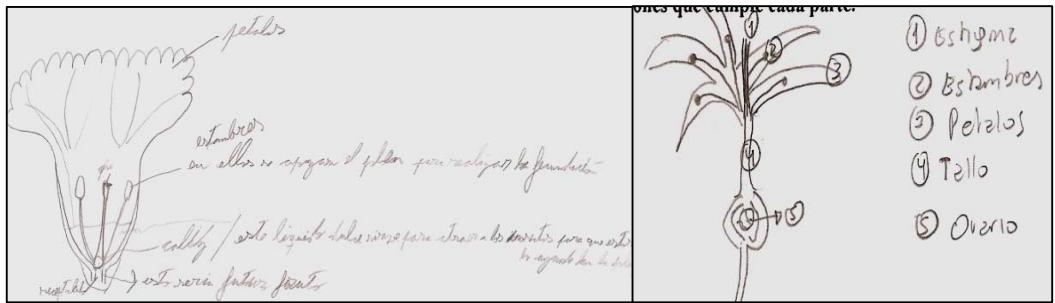 petalos
estambres
en ellos se apegan el polen para realizar la fecundación
/ este liquido dulce sirve para atraer a los insectos para que estos
les ayuden
receptaculo
esto seria futuro fruto
ones que cumple cada parte.
1
2
3
4
5
① Estigma
② Estambres
③ Petalos
④ Tallo
⑤ Ovario